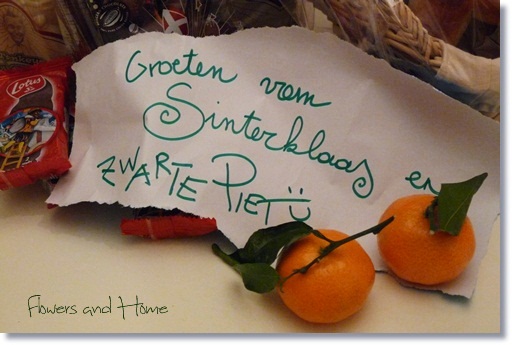 Groeten vom
Sinterklaas en
ZWARTE PIET Ü
LOTUS
Flowers and Home